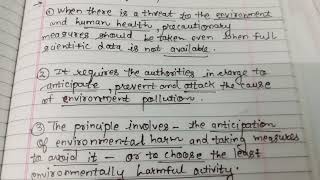 ① When there is a threat to the environment
and human health, precautionary
measures should be taken even when full
scientific data is not available.
② It requires the authorities in charge to
anticipate, prevent and attack the cause
of environment pollution.
③ The principle involves - the anticipation
of environmental harm and taking measures
to avoid it - or to choose the least
environmentally harmful activity.